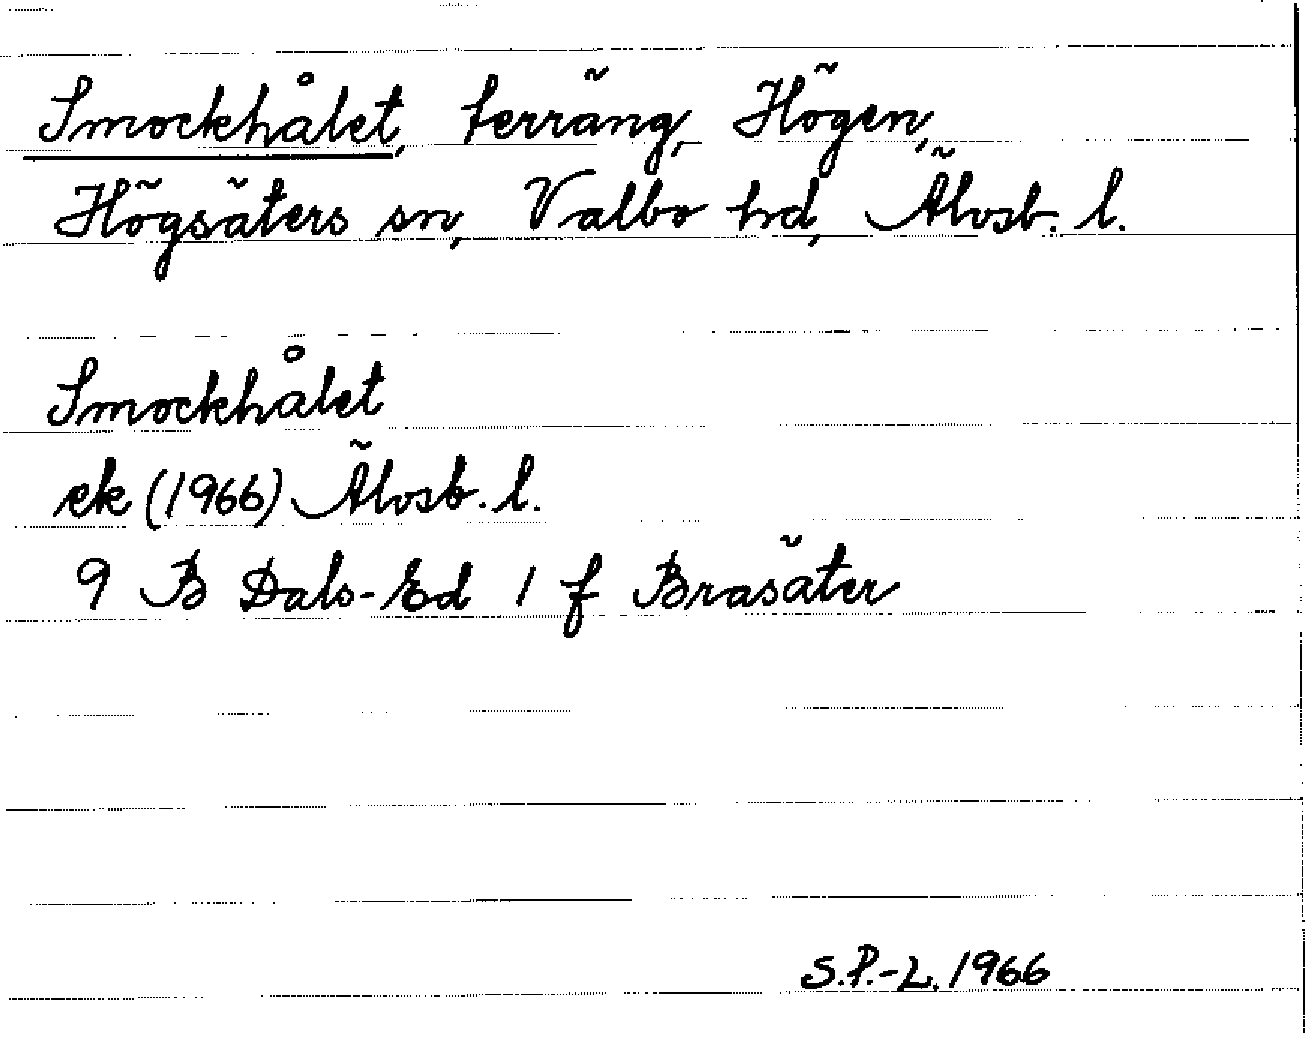 Smockhålet, terräng, Högen,
Högsäters sn, Valbo hd, Älvsb. l.
Smockhålet
ek (1966) Älvsb. l.
9 B Dals-Ed 1 f Brasäter
S.P.-L. 1966